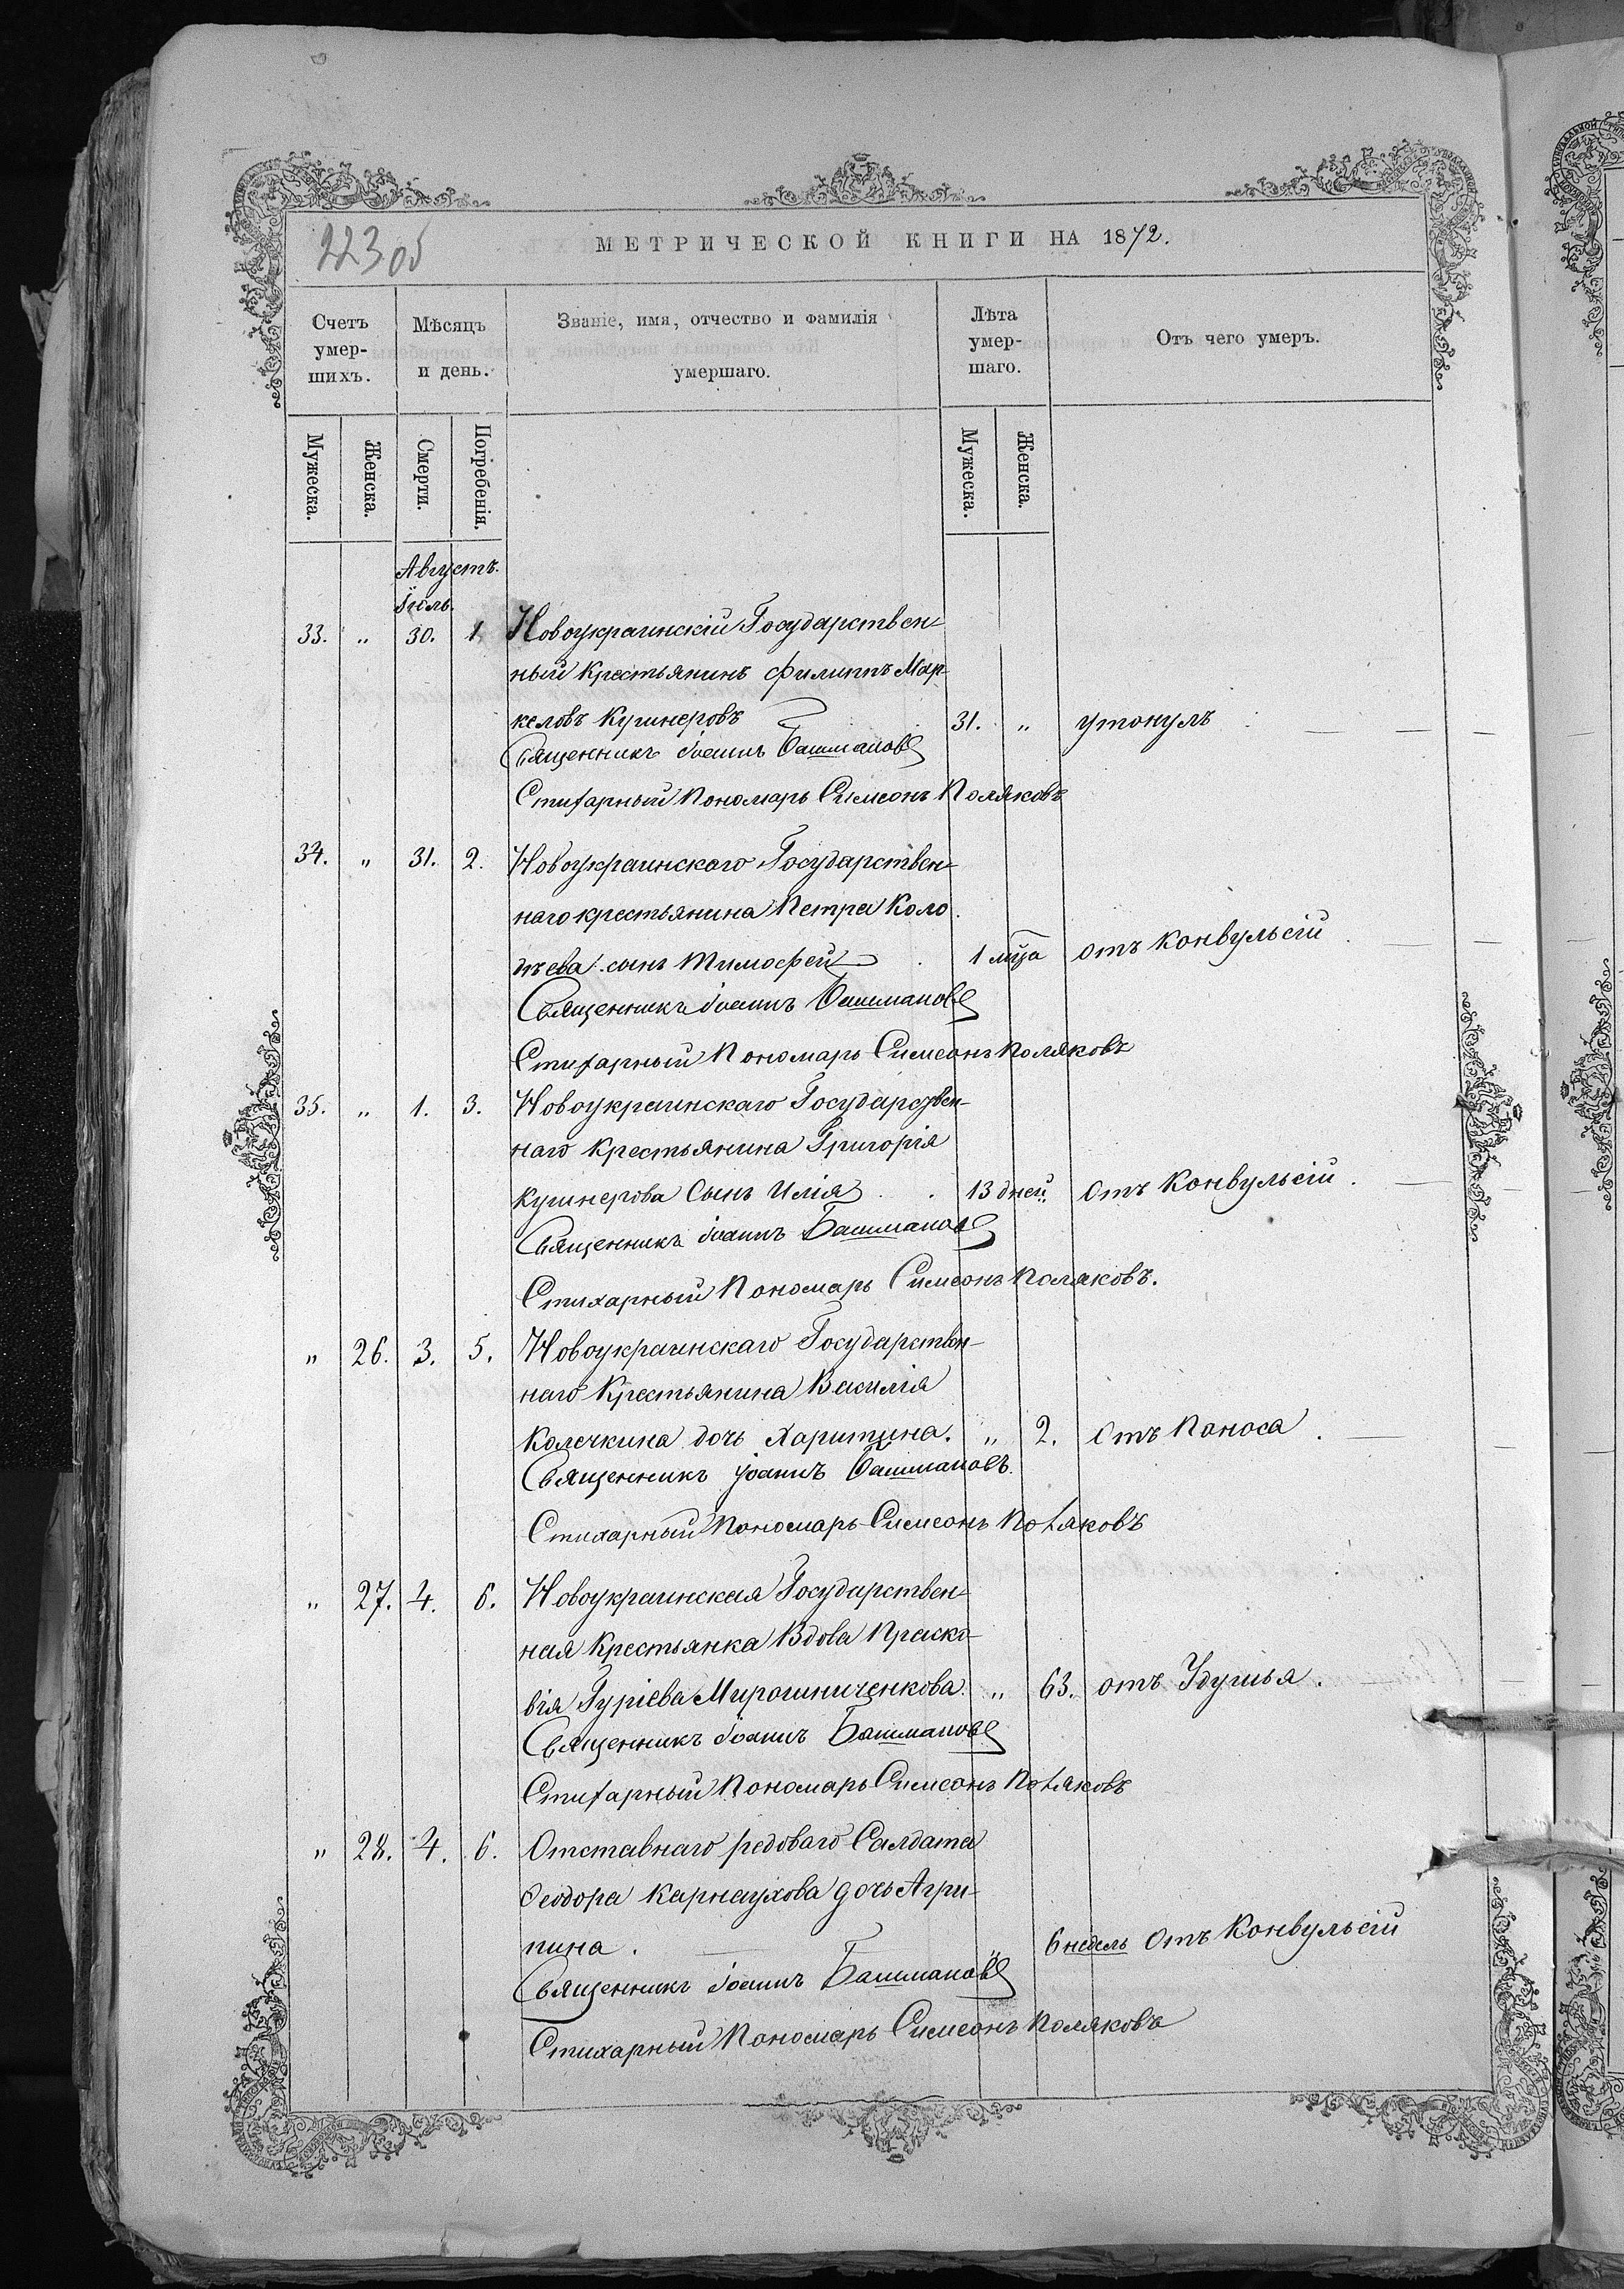 223 об
МЕТРИЧЕСКОЙ КНИГИ НА 1872.
Счетъ умер-шихъ.
Мѣсяцъ и день.
Званіе, имя, отчество и фамилія умершаго.
Лѣта умер-шаго.
Отъ чего умеръ.
Мужеска.
Женска.
Смерти.
Погребенія.
Мужеска.
Женска.
Августъ.
Іюль.
33. „ 30. 1. Новоукраинскій Государствен-
ный Крестьянинъ Филиппъ Мар-
келовъ Кушнеровъ 31. „ утонулъ
Священникъ Іоаннъ Башмановъ
Стихарный Пономарь Симеонъ Поляковъ
34. „ 31. 2. Новоукраинскаго Государствен-
наго крестьянина Петра Коло-
дѣева сынъ Тимофей 1 мѣца отъ конвульсій
Священникъ Іоаннъ Башмановъ
Стихарный Пономарь Симеонъ Поляковъ
35. „ 1. 3. Новоукраинскаго Государствен-
наго Крестьянина Григорія
Кушнерова Сынъ Илія 13 дней отъ Конвульсій.
Священникъ Іоаннъ Башмановъ
Стихарный Пономарь Симеонъ Поляковъ.
„ 26. 3. 5. Новоукраинскаго Государствен-
наго Крестьянина Василія
Колечкина дочь Харитина. „ 2. Отъ Поноса.
Священникъ Іоаннъ Башмановъ.
Стихарный Пономарь Симеонъ Поляковъ
„ 27. 4. 6. Новоукраинская Государствен-
ная Крестьянка Вдова Праско-
вія Гуріева Мирошниченкова. „ 63. отъ Удушья.
Священникъ Іоаннъ Башмановъ
Стихарный Пономарь Симеонъ Поляковъ
„ 28. 4. 6. Отставнаго редоваго Салдата
Феодора Карнаухова дочь Агри-
пина. „ 6 недель Отъ Конвульсій
Священникъ Іоаннъ Башмановъ
Стихарный Пономарь Симеонъ Поляковъ